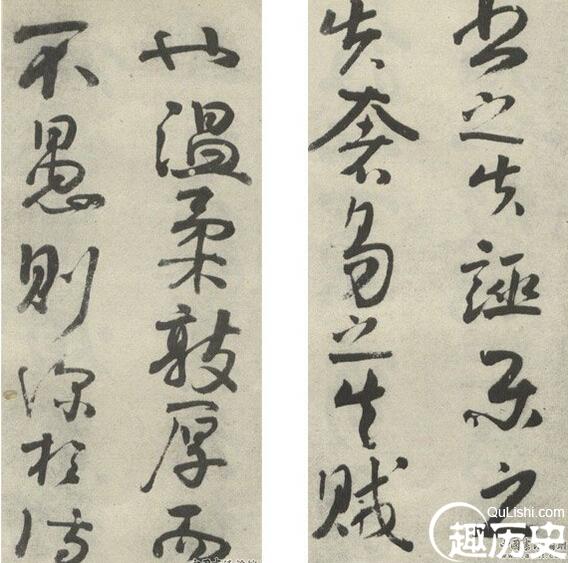 書之失誣樂之
失奢易之失賊
也溫柔敦厚而
不愚則深於詩
QuLishi.com
趣历史